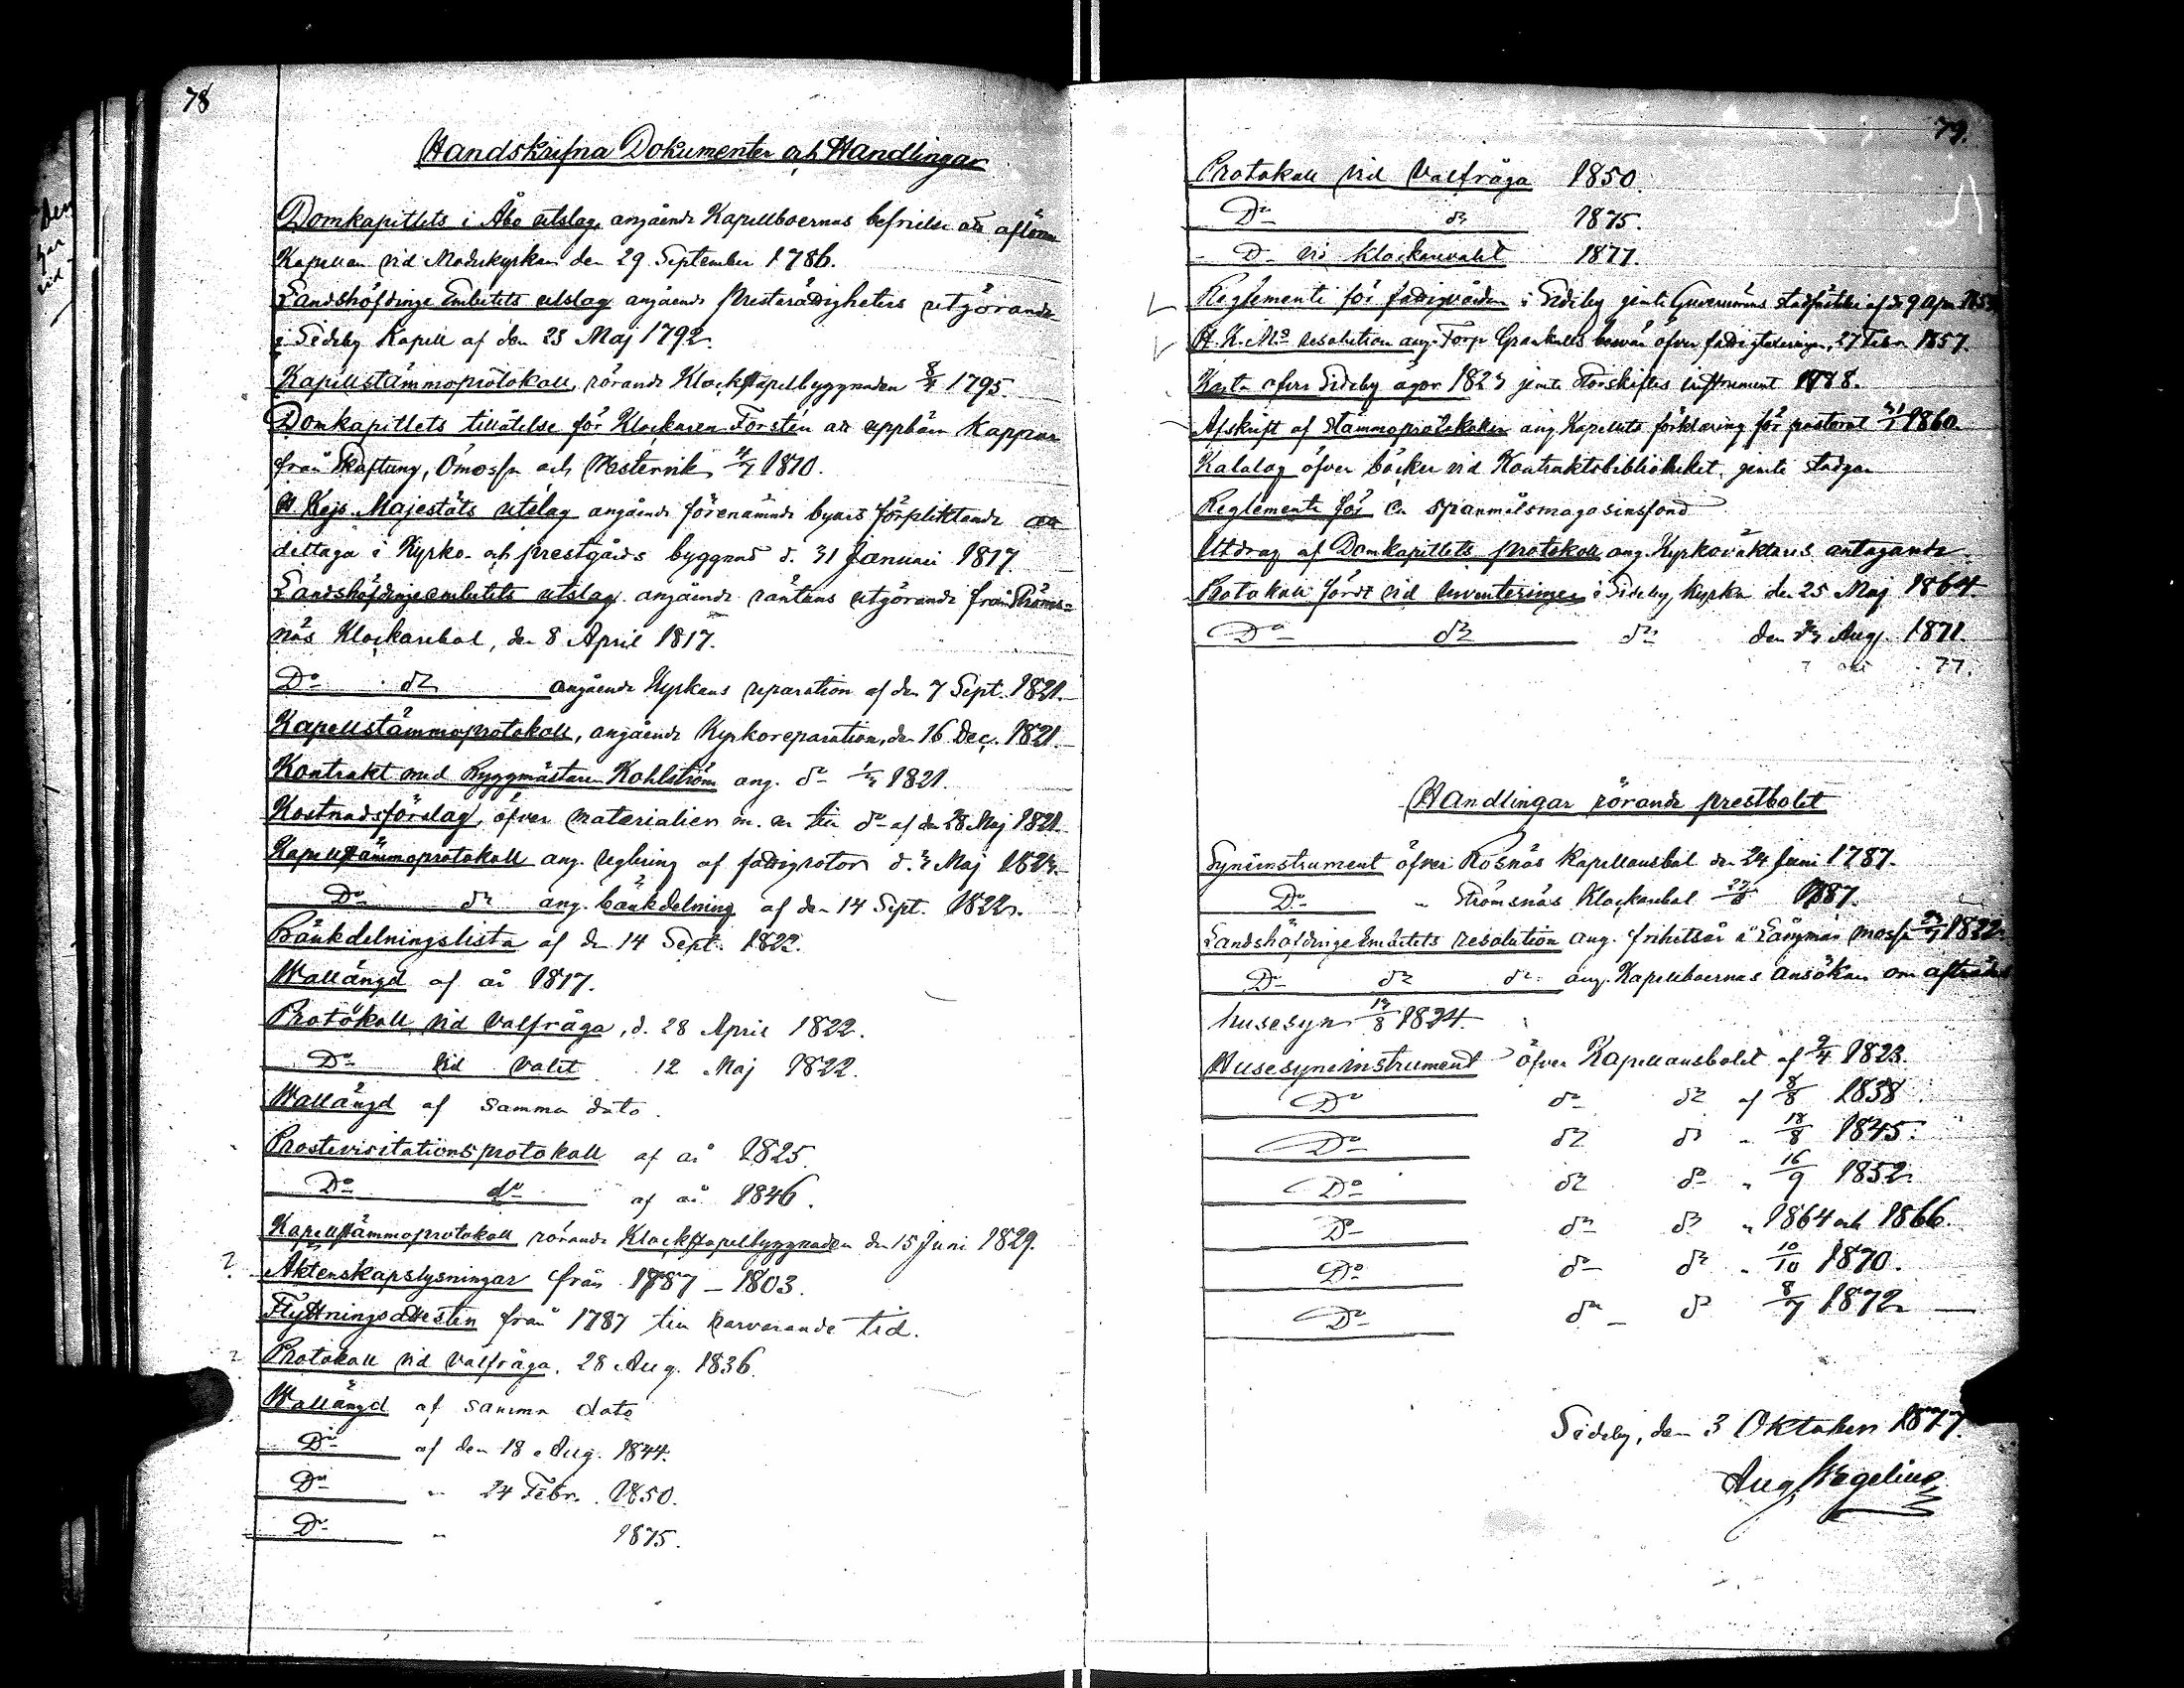 78
Handskrifna Dokumenter och Handlingar
Domkapitlets i Åbo utslag, angående Kapellboernas befrielse att aflöna
Kapellan vid Moderkyrkan den 29 September 1786.
Landshöfdinge Embetets utslag angående Prestarättigheters utgörande
i Sideby Kapell af den 23 Maj 1792.
Kapellstämmoprotokoll, rörande Klockstapelbyggnaden 1795.
Domkapitlets tillåtelse för Klockaren Forstén att uppbära Kappar
från Skaftung, Ömossa och Westervik 1810.
H. Kejs. Majestäts utslag angående förenämnde byars förpliktande att
deltaga i Kyrko- och prestgårds byggnad d. 31 Januari 1817
Landshöfdingeembetets utslag angående räntans utgörande från Ströms-
näs Klockarebol, den 8 April 1817.
Do do angående Kyrkans reparation af den 7 Sept. 1821.
Kapellstämmoprotokoll, angående Kyrkoreparation, den 16 Dec. 1821.
Kontrakt med Byggmästaren Kohlström ang. do 1821.
Kostnadsförslag, öfver materialier m. m. till do af den 28 Maj 1821.
Kapellstämmoprotokoll ang. reglering af fattigrotor d. 3 Maj 1823.
Do do ang. bänkdelning af den 14 Sept. 1822.
Bänkdelningslista af den 14 Sept. 1822.
Wallängd af år 1817.
Protokoll vid Valfråga, d. 28 April 1822.
Do vid Valet 12 Maj 1822.
Wallängd af samma dato.
Prostevisitationsprotokoll af år 1825.
Do do af år 1846.
Kapellstämmoprotokoll rörande Klockstapelbyggnaden den 15 Juni 1829.
? Äktenskapslysningar från 1787 – 1803.
Flyttningsattester från 1787 till närvarande tid.
? Protokoll vid valfråga, 28 Aug. 1836.
Wallängd af samma dato
Do af den 18 Aug. 1844.
Do " 24 Febr. 1850.
Do " 1875.
79.
Protokoll vid Valfråga 1850.
Do do 1875.
Do vid Klockarevalet 1877.
Reglemente för fattigvården i Sideby jemte Guvernörens stadfästelse af d. 9 Apr.
H. K. Ms resolution ang. Torp. Grankulls besvär öfver fattigtaxeringen, 27 Febr. 1857.
Karta öfver Sideby ägor 1823 jemte Storskiftes instrument 1788.
Afskrift af stämmoprotokoller ang Kapellets förklaring för pastorat 1860.
Katalog öfver böcker vid Kontraktsbiblioteket, jemte stadgar
Reglemente för en spanmålsmagasinsfond
Utdrag af Domkapitlets protokoll ang. Kyrkoväktares antagande
Protokoll fördt vid inventeringen i Sideby kyrka den 25 Maj 1864
Do do do den Aug. 1871.
77.
Handlingar rörande prestbolet
Syneinstrument öfver Rosnäs Kapellansbol den 24 Juni 1787.
Do " Strömsnäs Klockarebol 1787.
Landshöfdinge Embetets resolution ang. frihetsår å Långmar mossa 1822
Do do do ang. Kapellboernas ansökan om afträdes
husesyn 13/8 1824.
Husesyneinstrument öfver Kapellansbolet af 9/4 1823.
Do do do af 8/8 1838.
Do do do " 18/8 1845.
Do do do " 16/9 1852.
Do do do " 1864 och 1866.
Do do do " 10/10 1870.
Do do do 8/7 1872
Sideby, den 3 Oktober 1877.
Aug. Wegelius